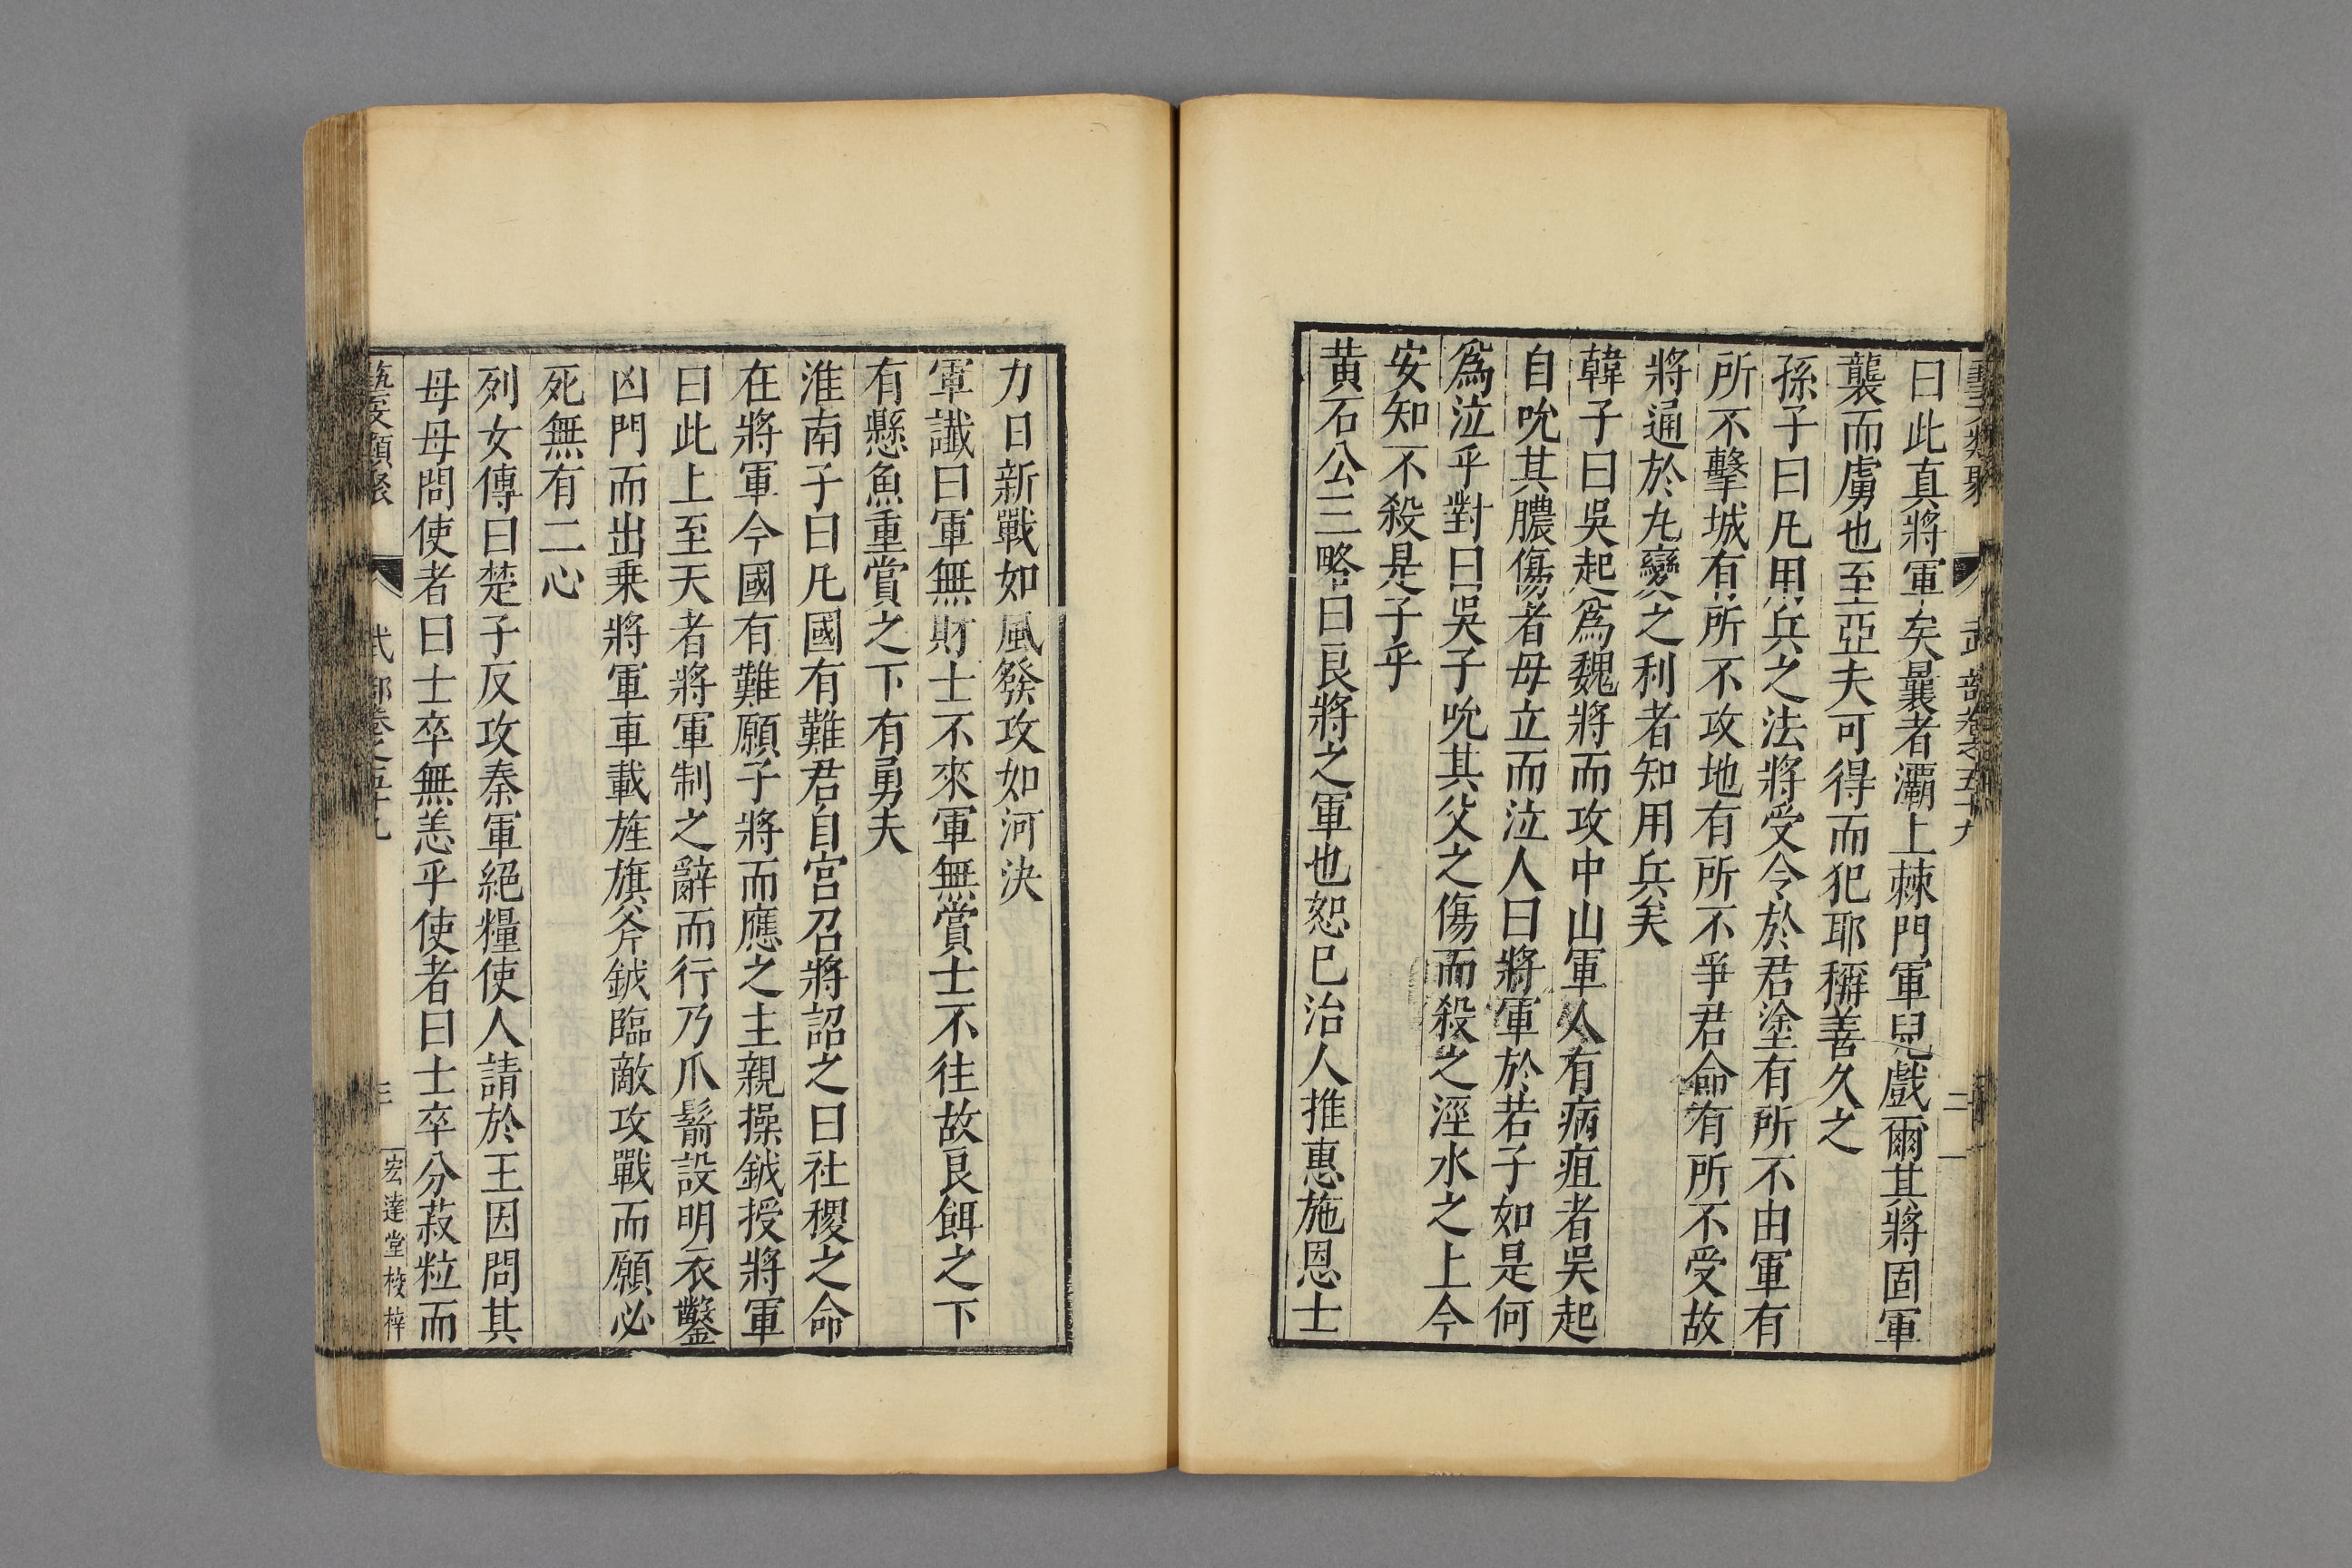 曰此真將軍矣曩者灞上棘門軍兒戲爾其將固軍
襲而虜也至亞夫可得而犯耶稱善久之
孫子曰凡用兵之法將受令於君塗有所不由軍有
所不擊城有所不攻地有所不爭君命有所不受故
將通於九變之利者知用兵矣
韓子曰吳起爲魏將而攻中山軍人有病疽者吳起
自吮其膿傷者母立而泣人曰將軍於若子如是何
爲泣乎對曰吳子吮其父之傷而殺之涇水之上今
安知不殺是子乎
黃石公三略曰良將之軍也恕已治人推惠施恩士
力日新戰如風發攻如河決
軍讖曰軍無財士不來軍無賞士不往故良餌之下
有懸魚重賞之下有勇夫
淮南子曰凡國有難君自宮召將詔之曰社稷之命
在將軍今國有難願子將而應之主親操鉞授將軍
曰此上至天者將軍制之辭而行乃爪鬋設明衣鑿
凶門而出乗將軍車載旌旗斧鉞臨敵攻戰而願必
死無有二心
列女傳曰楚子反攻秦軍絕糧使人請於王因問其
母母問使者曰士卒無恙乎使者曰士卒分菽粒而
武部卷之五十九
三
宏達堂校梓